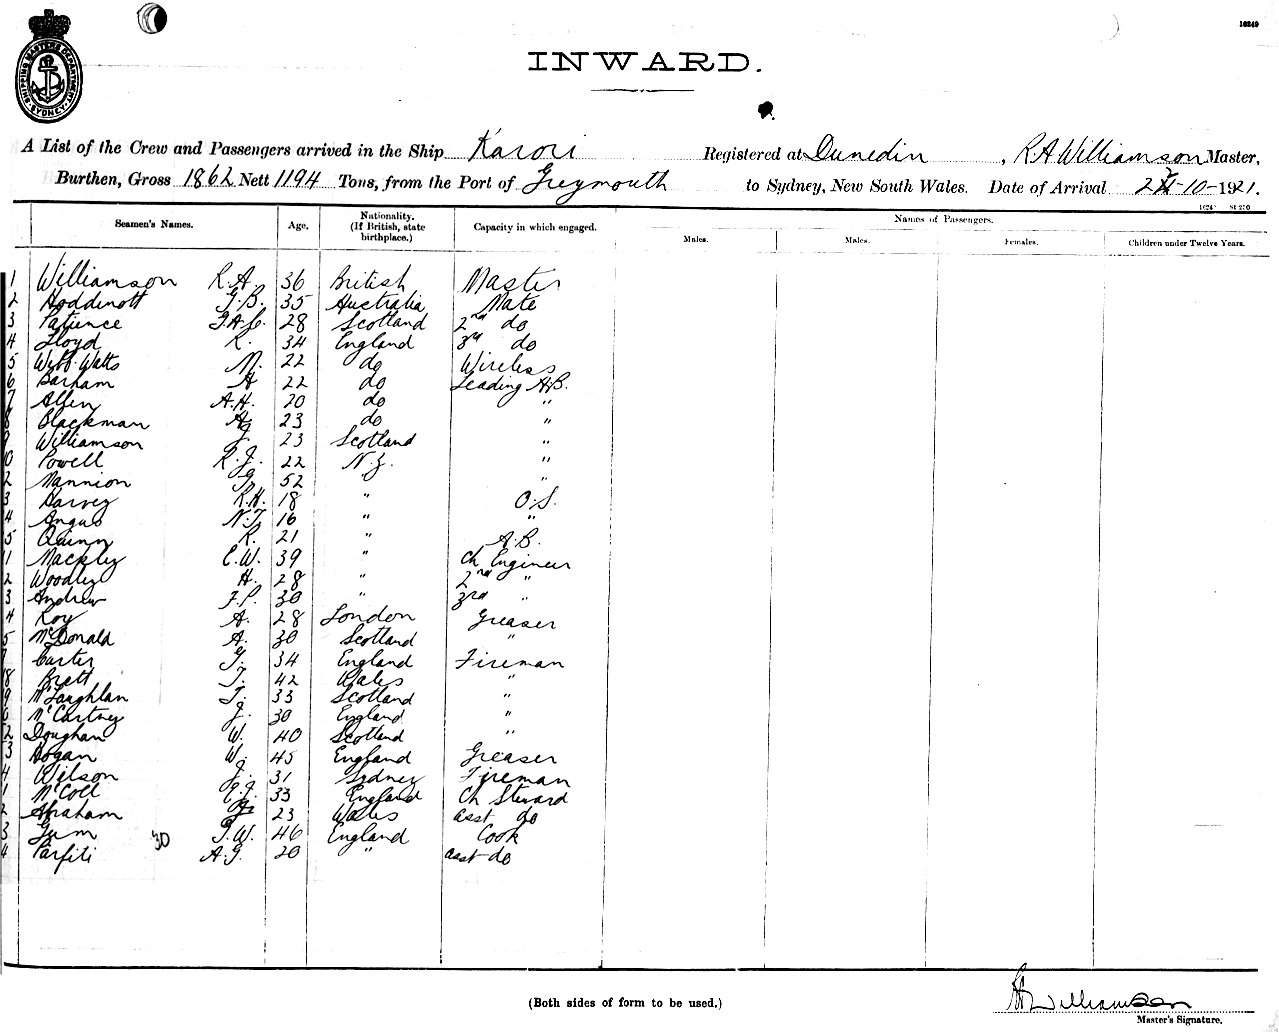 16249
SHIPPING MASTERS DEPARTMENT SYDNEY
INWARD.
A List of the Crew and Passengers arrived in the Ship Karori Registered at Dunedin, R A Williamson Master,
Burthen, Gross 1862 Nett 1194 Tons, from the Port of Greymouth to Sydney, New South Wales. Date of Arrival -10-1921.
Seamen's Names. Age. Nationality. (If British, state birthplace.) Capacity in which engaged. Names of Passengers.
Males. Males. Females. Children under Twelve Years.
1 Williamson R.A. 36 British Master
2 Hoddinott G.B. 35 Australia Mate
3 Patience 28 Scotland 2nd do
4 Lloyd R. 34 England 3rd do
5 Webb Watts N. 22 do Wireless
6 Barham A 22 do Leading A.B.
7 Allen A.H. 20 do "
8 Blackman A 23 do "
9 Williamson J. 23 Scotland "
0 Powell R.J. 22 N.Z. "
2 Mannion 52 " "
3 Harvey R.H. 18 " O.S.
4 Angus N.T. 16 " "
5 Quinn R. 21 " A.B.
11 Mackley E.W. 39 " Ch Engineer
2 Woodley H. 28 " 2nd "
3 Andrew F.P. 30 " 3rd "
4 Roy A. 28 London Greaser
5 McDonald A. 30 Scotland "
7 Carter T. 34 England Fireman
8 Brett T. 42 Wales "
9 McLaughlan T. 33 Scotland "
6 McCartney J. 30 England "
2 Doughan W. 40 Scotland "
3 Hogan W. 45 England Greaser
4 Wilson J. 31 Sydney Fireman
1 McColl E.J. 33 England Ch Steward
2 Abraham 23 Wales asst do
3 Gum 30 T.W. 46 England Cook
4 Parfiti A.G. 20 " asst do
(Both sides of form to be used.)
Williamson
Master's Signature.